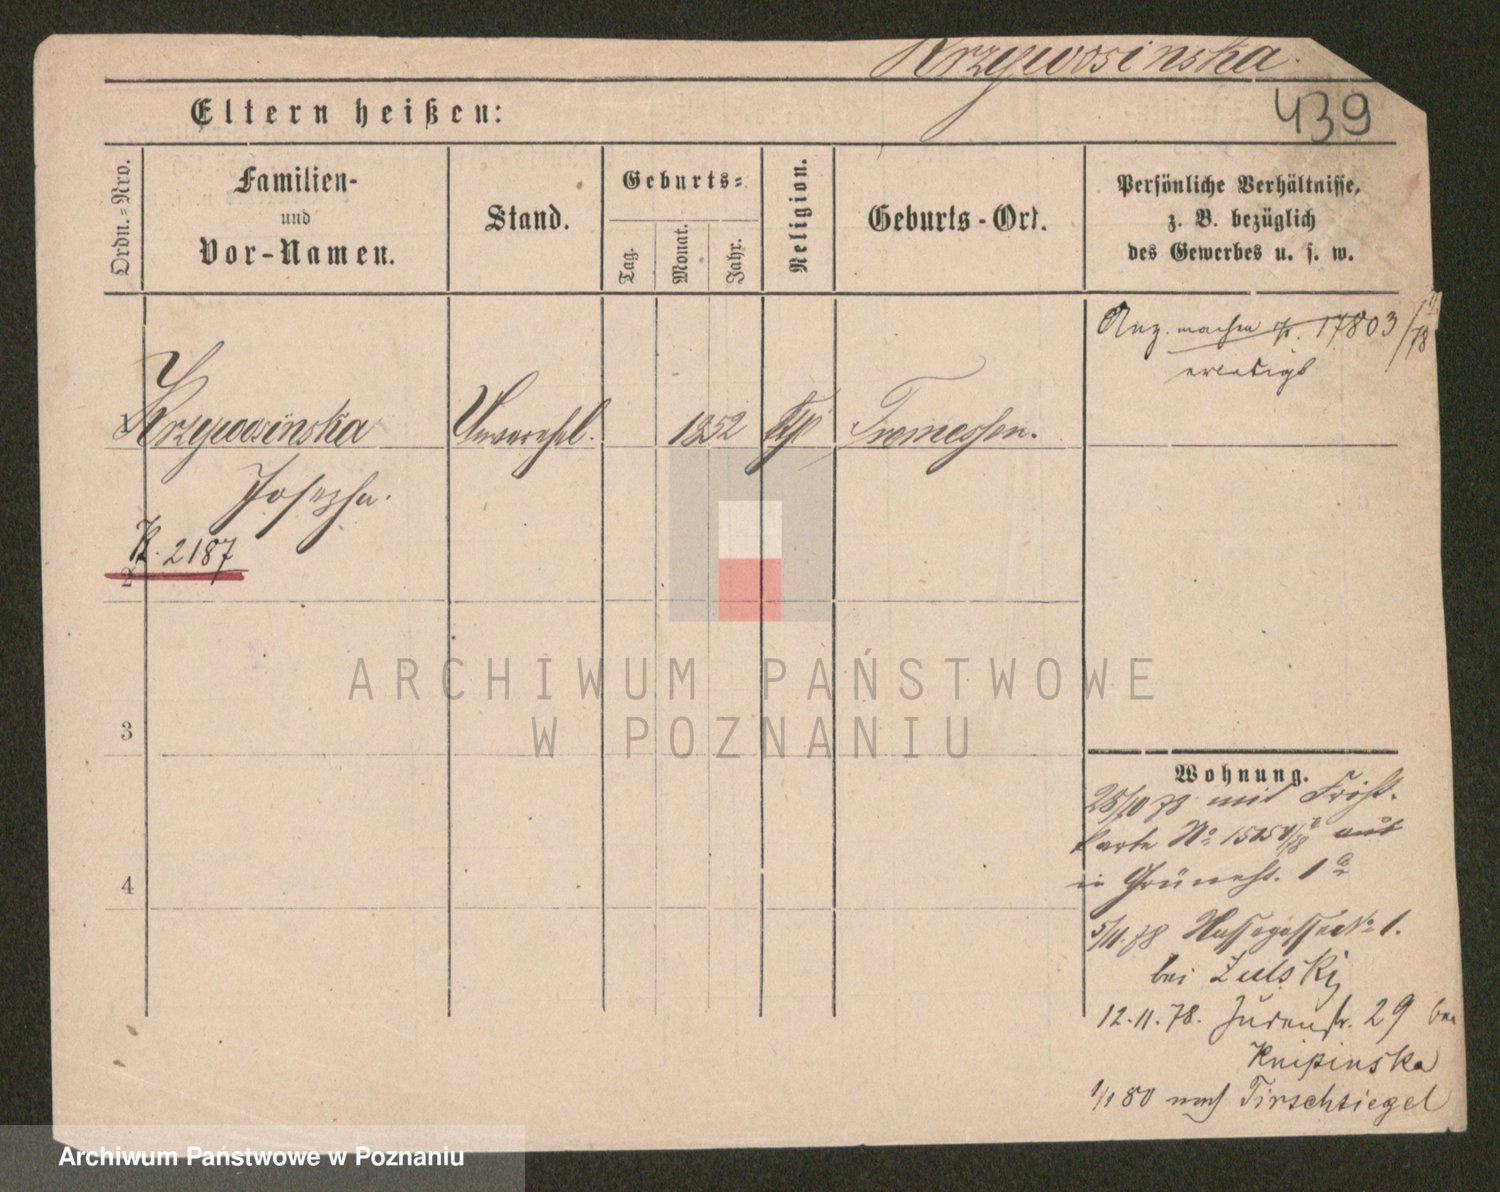 Krzywosinska.
439
Eltern heißen:
Ordn.-Nro.
Familien-
und
Vor-Namen.
Stand.
Geburts-
Tag.
Monat.
Jahr.
Religion.
Geburts-Ort.
Persönliche Verhältnisse,
z. B. bezüglich
des Gewerbes u. s. w.
machen 17803/78
erledigt
Krzywosinska
Josepha.
Unverehel.
1852
Tremessen.
K. 2187
2
3
4
Wohnung.
28/10 78 mit
Karte No
in Grünest. 1a
5/11.78 No 1.
bei Zulski
12.11.78. Judenstr. 29 bei
Knipinska
1/1 80 nach Tirschtiegel
ARCHIWUM PAŃSTWOWE
W POZNANIU
Archiwum Państwowe w Poznaniu